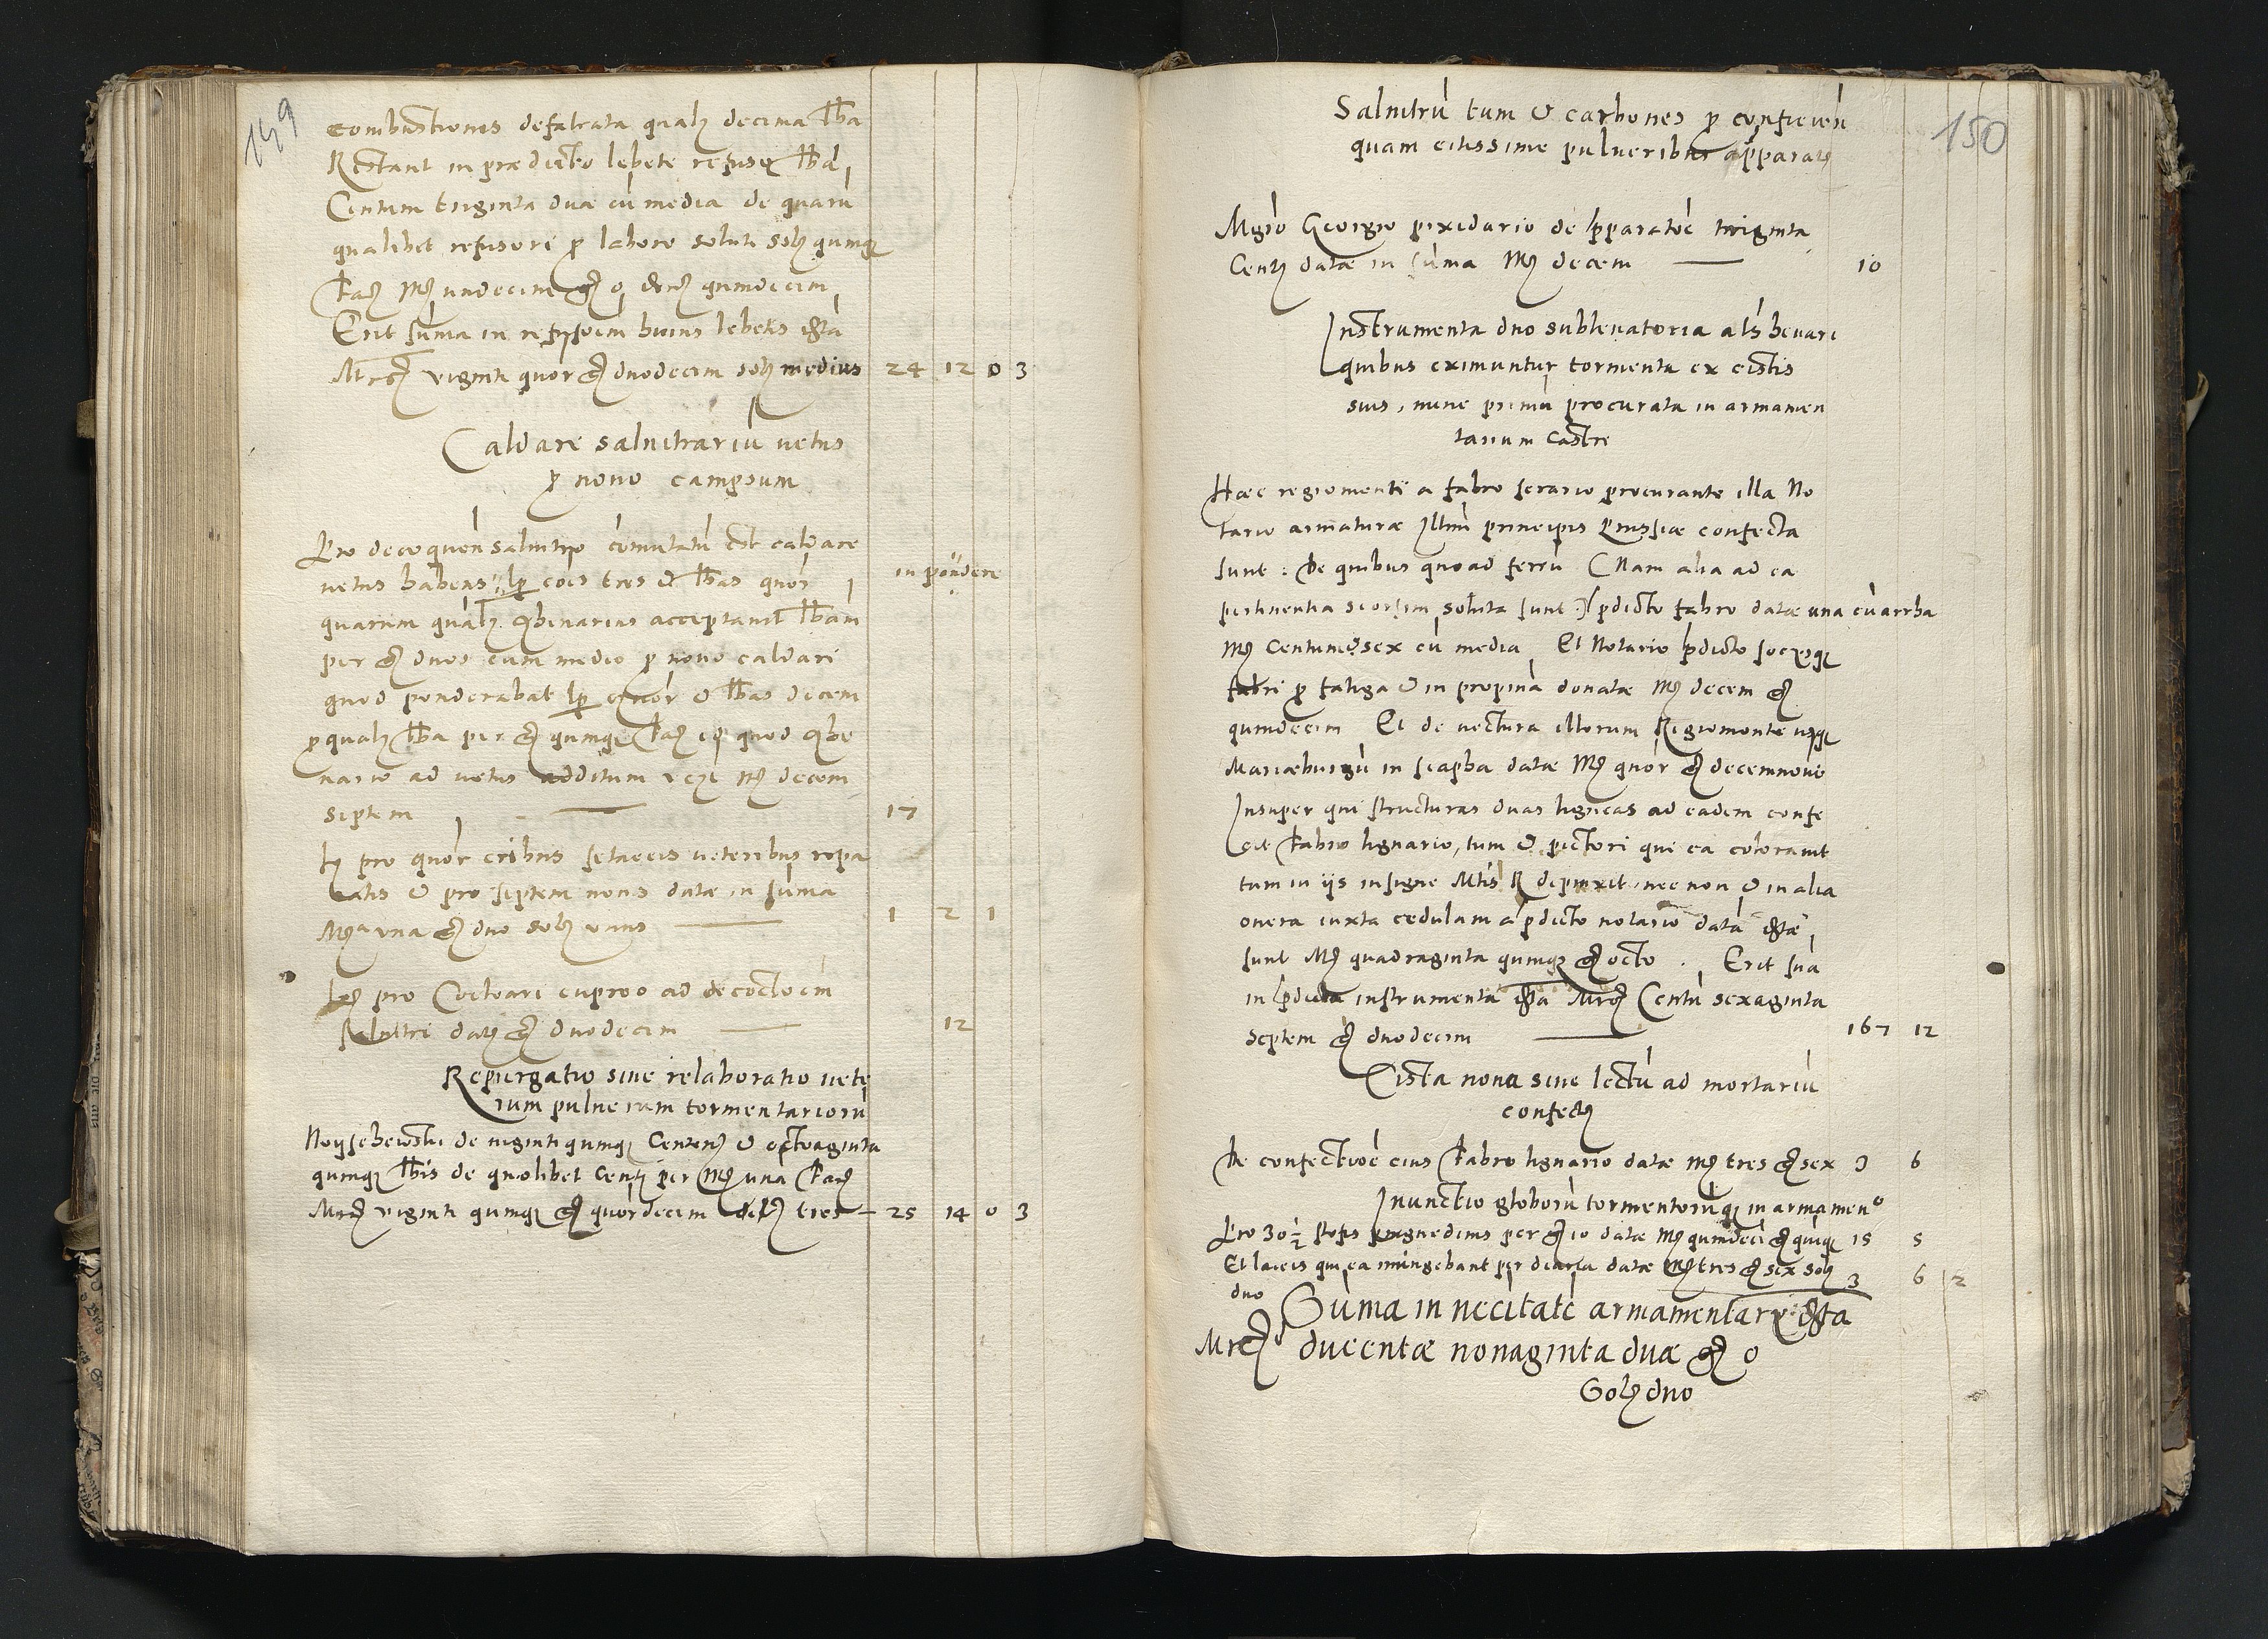 149
combustionis defalcata qualz decima lba
Restant in prædicto lebete refusæ lbæ
Centum triginta duæ cu media de quaru
qualibet refusori p labore soluti solz quinqz
Facz Mcz undecim gz 0 denz quindecim
Erit suma in refusioem huius lebetis exta
Mrcz viginti quor gz duodecim solz medius 24 12 0 3
Caldare salnitrariu vetus
p novo campsum
Pro decoquen salnitro comutatu est caldare
vetus habens lp cois tres & lbas quor in pondere
quarum qualz cbinarius acceptavit lbam
per gz duos cum medio p novo caldari
quod ponderabat lp quor & lbas decem
p qualz lba per gz quinqz Facz eq quod cbe
nario ad vetus additum Mcz decem
septem 17
Itz pro quor cribris setaceis veteribus repa
ratis & pro septem novis datæ in suma
Mca una gz duo solz unus 1 2 1
Itz pro Coctoari cupreo ad decoctoem
Salnitri datz gz duodecim 12
Repurgatio sive relaboratio vete
rum pulverum tormentarioru
de viginti quinqz Centenz & octoaginta
quinqz lbis de quolibet Centz per Mcz una Facz
Mrcz viginti quinqz gz quordecim denz tres 25 14 0 3
150
Salnitru tum & carbones p conficien
quam citissime pulveribus apparatz
Mgro Georgio pixidario de pparatoe triginta
Centz datæ in suma Mcz decem 10
Instrumenta duo sublevatoria als hevari
quibus eximuntur tormenta ex cistis
suis, nunc primu procurata in armamen
tarium Castri
Hæc regiomenti a fabro serario procurante illa No
tario armaturæ Illmi principis Prussiæ confecta
sunt: De quibus quoad ferru (Nam alia ad ea
pertinentia seorsim soluta sunt:) pdicto fabro datæ una cu arrha
Mcz Centum sex cu media Et Notario pdicto socrisqz
fabri p fatiga & in propina donatæ Mcz decem gz
quindecim Et de vectura illorum Regiomonte usqz
Mariæburgu in scapha datæ Mcz quor gz decemnove
Insuper qui structuras duas ligneas ad eadem confe
cit Fabro lignario, tum & pictori qui ea coloravit
tum in ijs insigne Mtis R depinxit, nec non & in alia
onera iuxta cedulam a pdicto notario data extæ
sunt Mcz quadraginta quinqz gz octo. Erit sua
in pdicta instrumenta exta Mrcz Centu sexaginta
septem gz duodecim 167 12
Cista nova sive lectu ad mortariu
confectz
De confectioe eius Fabro lignario datæ Mcz tres gz sex 3 6
Inunctio globoru tormentoruqz in armameno
Pro 30 1/2 stofis pingvedinis per gz 10 datæ Mcz quindeci gz quiqz 15 5
Et laicis qui ea inungebant per datæ Mcz tres gz sex solz
duo 3 6 2
Suma in necitate armamentarij exta
Mrcz ducentæ nonaginta duæ gz 0
Solz duo